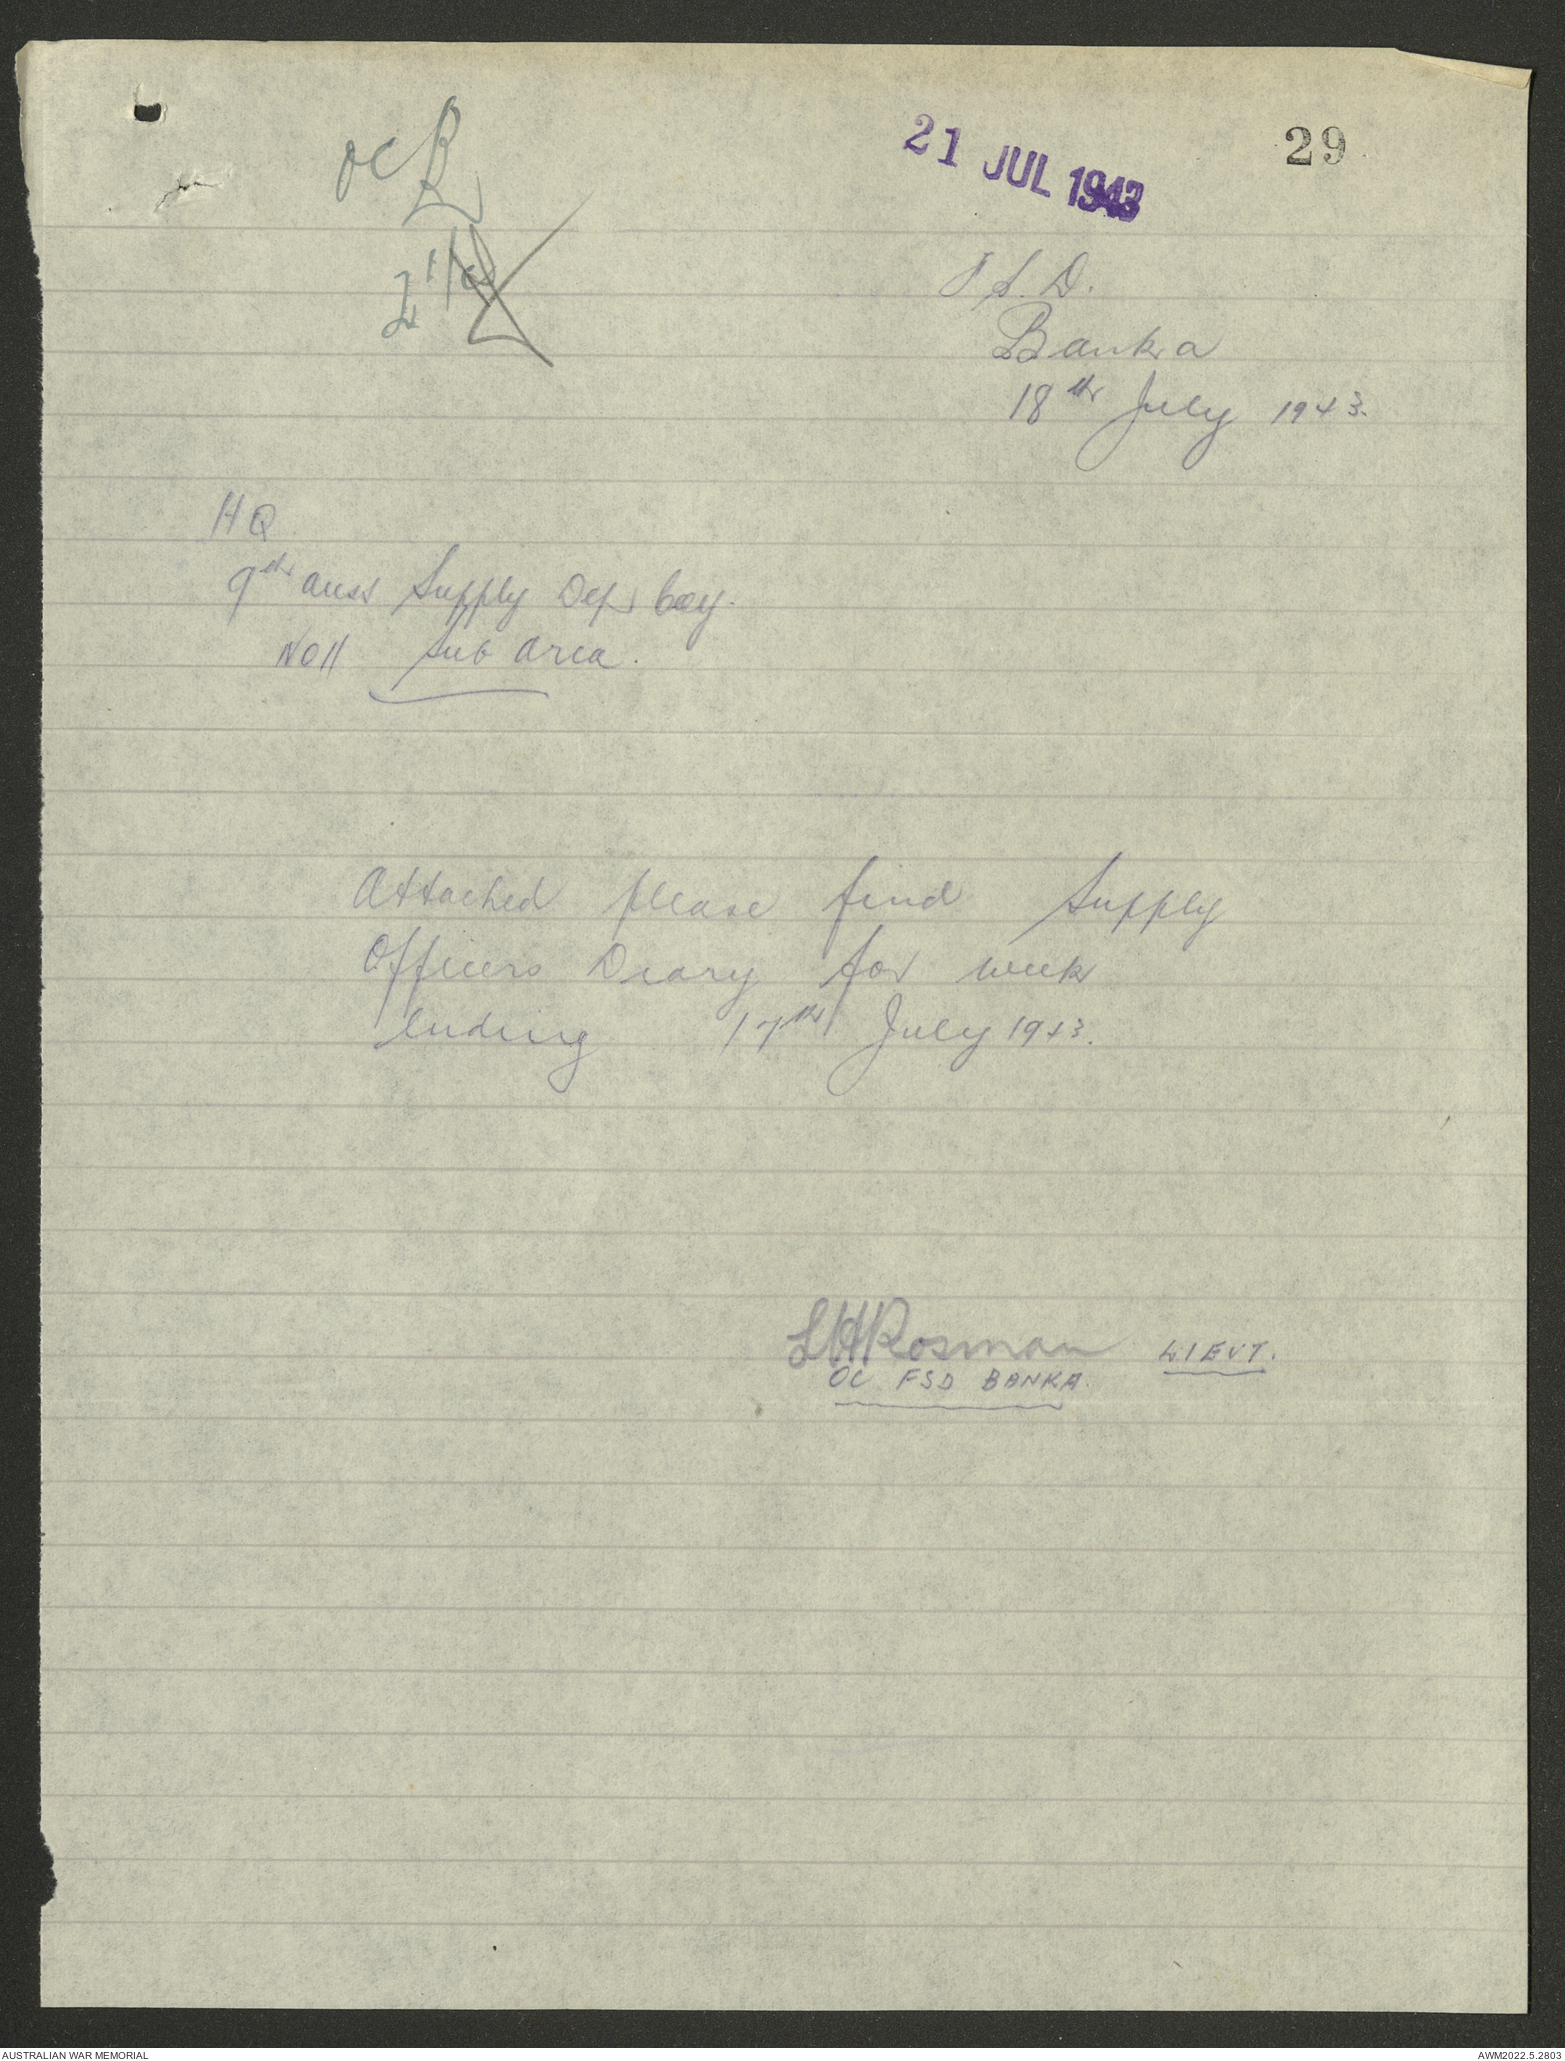 OC
21 JUL 1943
29
F.S.D.
Banka
18th July 1943.
HQ
9th Aust Supply Dep Coy.
No 11 Sub Area.
Attached please find Supply
Officers Diary for week
ending 17th July 1943.
LHRosman LIEUT.
OC FSD BANKA.
AUSTRALIAN WAR MEMORIAL
AWM2022.5.2803